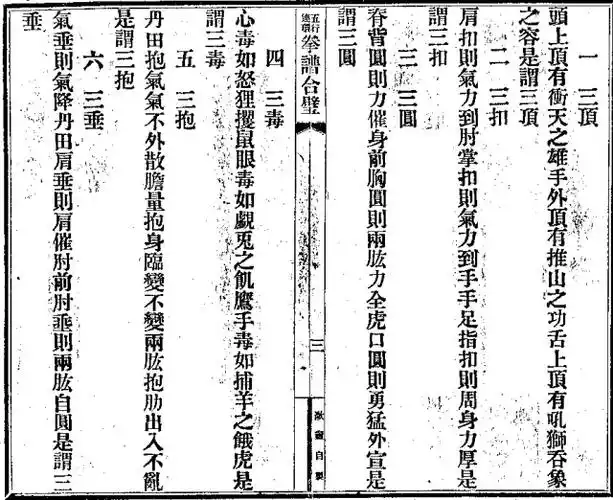 一　三頂
頭上頂有衝天之雄手外頂有推山之功舌上頂有吼獅吞象
之容是謂三頂
二　三扣
肩扣則氣力到肘掌扣則氣力到手手足指扣則周身力厚是
謂三扣
三　三圓
脊背圓則力催身前胸圓則兩肱力全虎口圓則勇猛外宣是
謂三圓
五行連環拳譜合璧
三
自製
四　三毒
心毒如怒狸攫鼠眼毒如覷兎之飢鷹手毒如捕羊之餓虎是
謂三毒
五　三抱
丹田抱氣氣不外散膽量抱身臨變不變兩肱抱肋出入不亂
是謂三抱
六　三垂
氣垂則氣降丹田肩垂則肩催肘前肘垂則兩肱自圓是謂三
垂